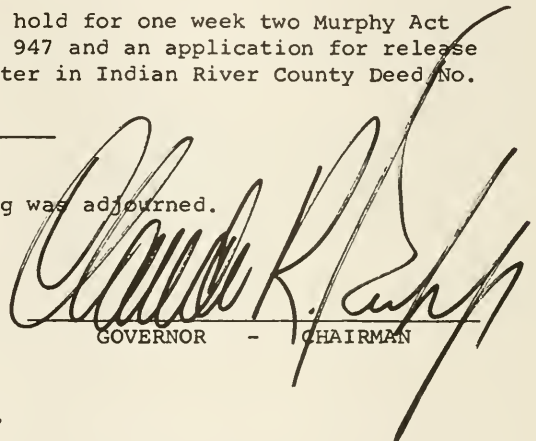 hold for one week two Murphy Act
947 and an application for release
ter in Indian River County Deed No.
g was adjourned.
Claude R. Kirk Jr
GOVERNOR - CHAIRMAN